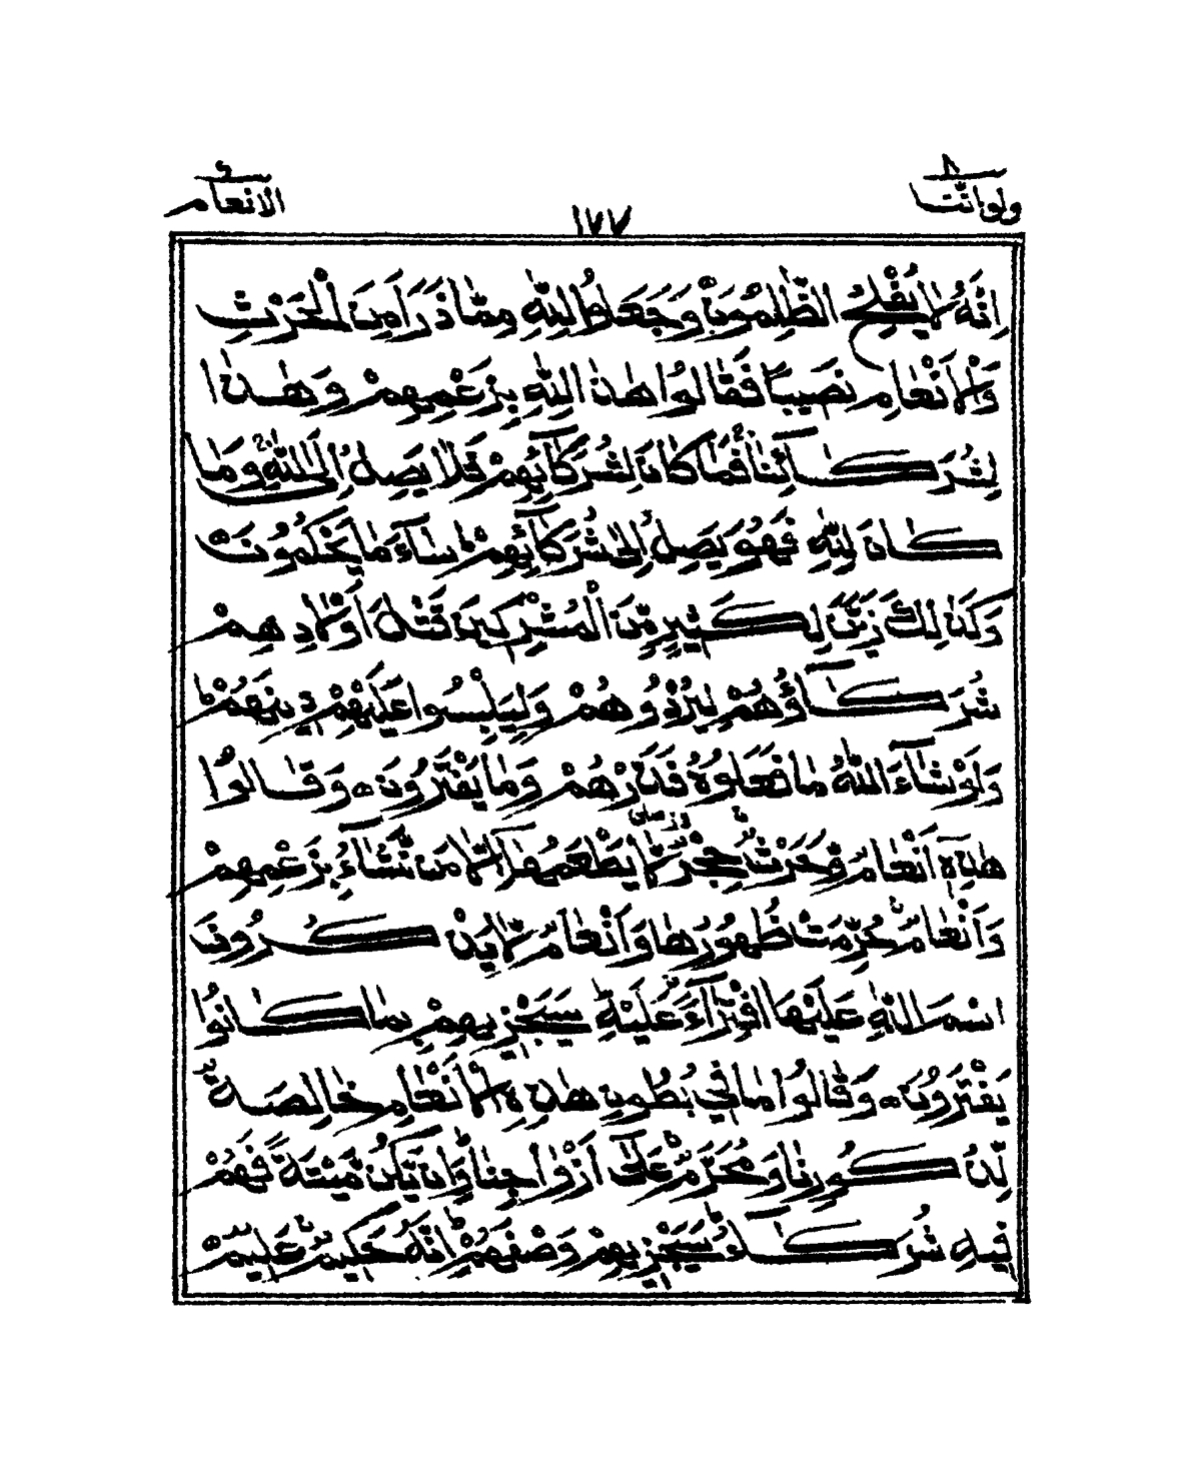 ولو اننا ٨
١٧٧
الانعام ٦
اِنَّهُ لَا يُفْلِحُ الظّٰلِمُوْنَ وَجَعَلُوْا لِلّٰهِ مِمَّا ذَرَاَ مِنَ الْحَرْثِ
وَالْاَنْعَامِ نَصِيْبًا فَقَالُوْا هٰذَا لِلّٰهِ بِزَعْمِهِمْ وَهٰذَا
لِشُرَكَآئِنَا فَمَا كَانَ لِشُرَكَآئِهِمْ فَلَا يَصِلُ اِلَى اللّٰهِ وَمَا
كَانَ لِلّٰهِ فَهُوَ يَصِلُ اِلٰى شُرَكَآئِهِمْ ط سَآءَ مَا يَحْكُمُوْنَ
وَكَذٰلِكَ زَيَّنَ لِكَثِيْرٍ مِّنَ الْمُشْرِكِيْنَ قَتْلَ اَوْلَادِهِمْ
شُرَكَآؤُهُمْ لِيُرْدُوْهُمْ وَلِيَلْبِسُوْا عَلَيْهِمْ دِيْنَهُمْ ط
وَلَوْ شَآءَ اللّٰهُ مَا فَعَلُوْهُ فَذَرْهُمْ وَمَا يَفْتَرُوْنَ ه وَقَالُوْا
هٰذِهٖ اَنْعَامٌ وَّحَرْثٌ حِجْرٌ لَّا يَطْعَمُهَا اِلَّا مَنْ نَّشَآءُ بِزَعْمِهِمْ
وَاَنْعَامٌ حُرِّمَتْ ظُهُوْرُهَا وَاَنْعَامٌ لَّا يَذْكُرُوْنَ
اسْمَ اللّٰهِ عَلَيْهَا افْتِرَآءً عَلَيْهِ ط سَيَجْزِيْهِمْ بِمَا كَانُوْا
يَفْتَرُوْنَ ه وَقَالُوْا مَا فِيْ بُطُوْنِ هٰذِهِ الْاَنْعَامِ خَالِصَةٌ
لِّذُكُوْرِنَا وَمُحَرَّمٌ عَلٰٓى اَزْوَاجِنَا وَاِنْ يَّكُنْ مَّيْتَةً فَهُمْ
فِيْهِ شُرَكَآءُ ط سَيَجْزِيْهِمْ وَصْفَهُمْ ط اِنَّهٗ حَكِيْمٌ عَلِيْمٌ